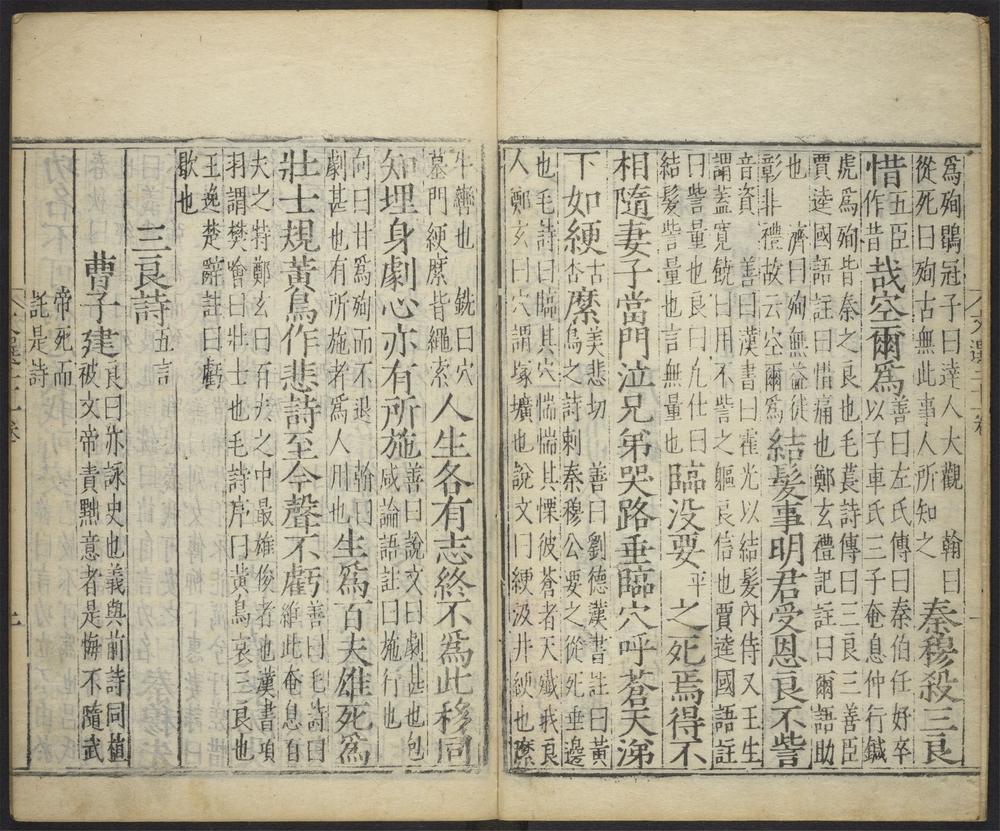 為殉鶡冠子曰達人大觀　翰曰從死曰殉古無此事人所知之秦穆殺三良
惜五臣作昔哉空爾為善曰左氏傳曰秦伯任好卒以子車氏三子奄息仲行鍼
虎為殉皆秦之良也毛萇詩傳曰三良三善臣賈逵國語註曰惜痛也鄭玄禮記註曰爾語助
也　濟曰殉無益徒彰非禮故云空爾為結髮事明君受恩良不訾
音資　善曰漢書曰霍光以結髮內侍又王生謂蓋寬饒曰用不訾之軀良信也賈逵國語註
曰訾量也良曰凡仕曰結髮訾量也言無量也臨沒要平之死焉得不
相隨妻子當門泣兄弟哭路垂臨穴呼蒼天涕
下如綆古杏縻美悲切　善曰劉德漢書註曰黃鳥之詩刺秦穆公要之從死垂邊
也毛詩曰臨其穴惴惴其慄彼蒼者天殲我良人鄭玄曰穴謂塚壙也說文曰綆汲井綆也縻
牛轡也　銑曰穴墓門綆縻皆繩索人生各有志終不為此移同
知埋身劇心亦有所施善曰說文曰劇甚也包咸論語註曰施行也
向曰甘為殉而不退　翰曰劇甚也有所施者為人用也生為百夫雄死為
壯士規黃鳥作悲詩至今聲不虧善曰毛詩曰維此奄息百
夫之特鄭玄曰百夫之中最雄俊者也漢書項羽謂樊噲曰壯士也毛詩序曰黃鳥哀三良也
王逸楚辭註曰虧歇也
三良詩五言
曹子建良曰亦詠史也義與前詩同植被文帝責黜意者是悔不隨武
帝死而託是詩